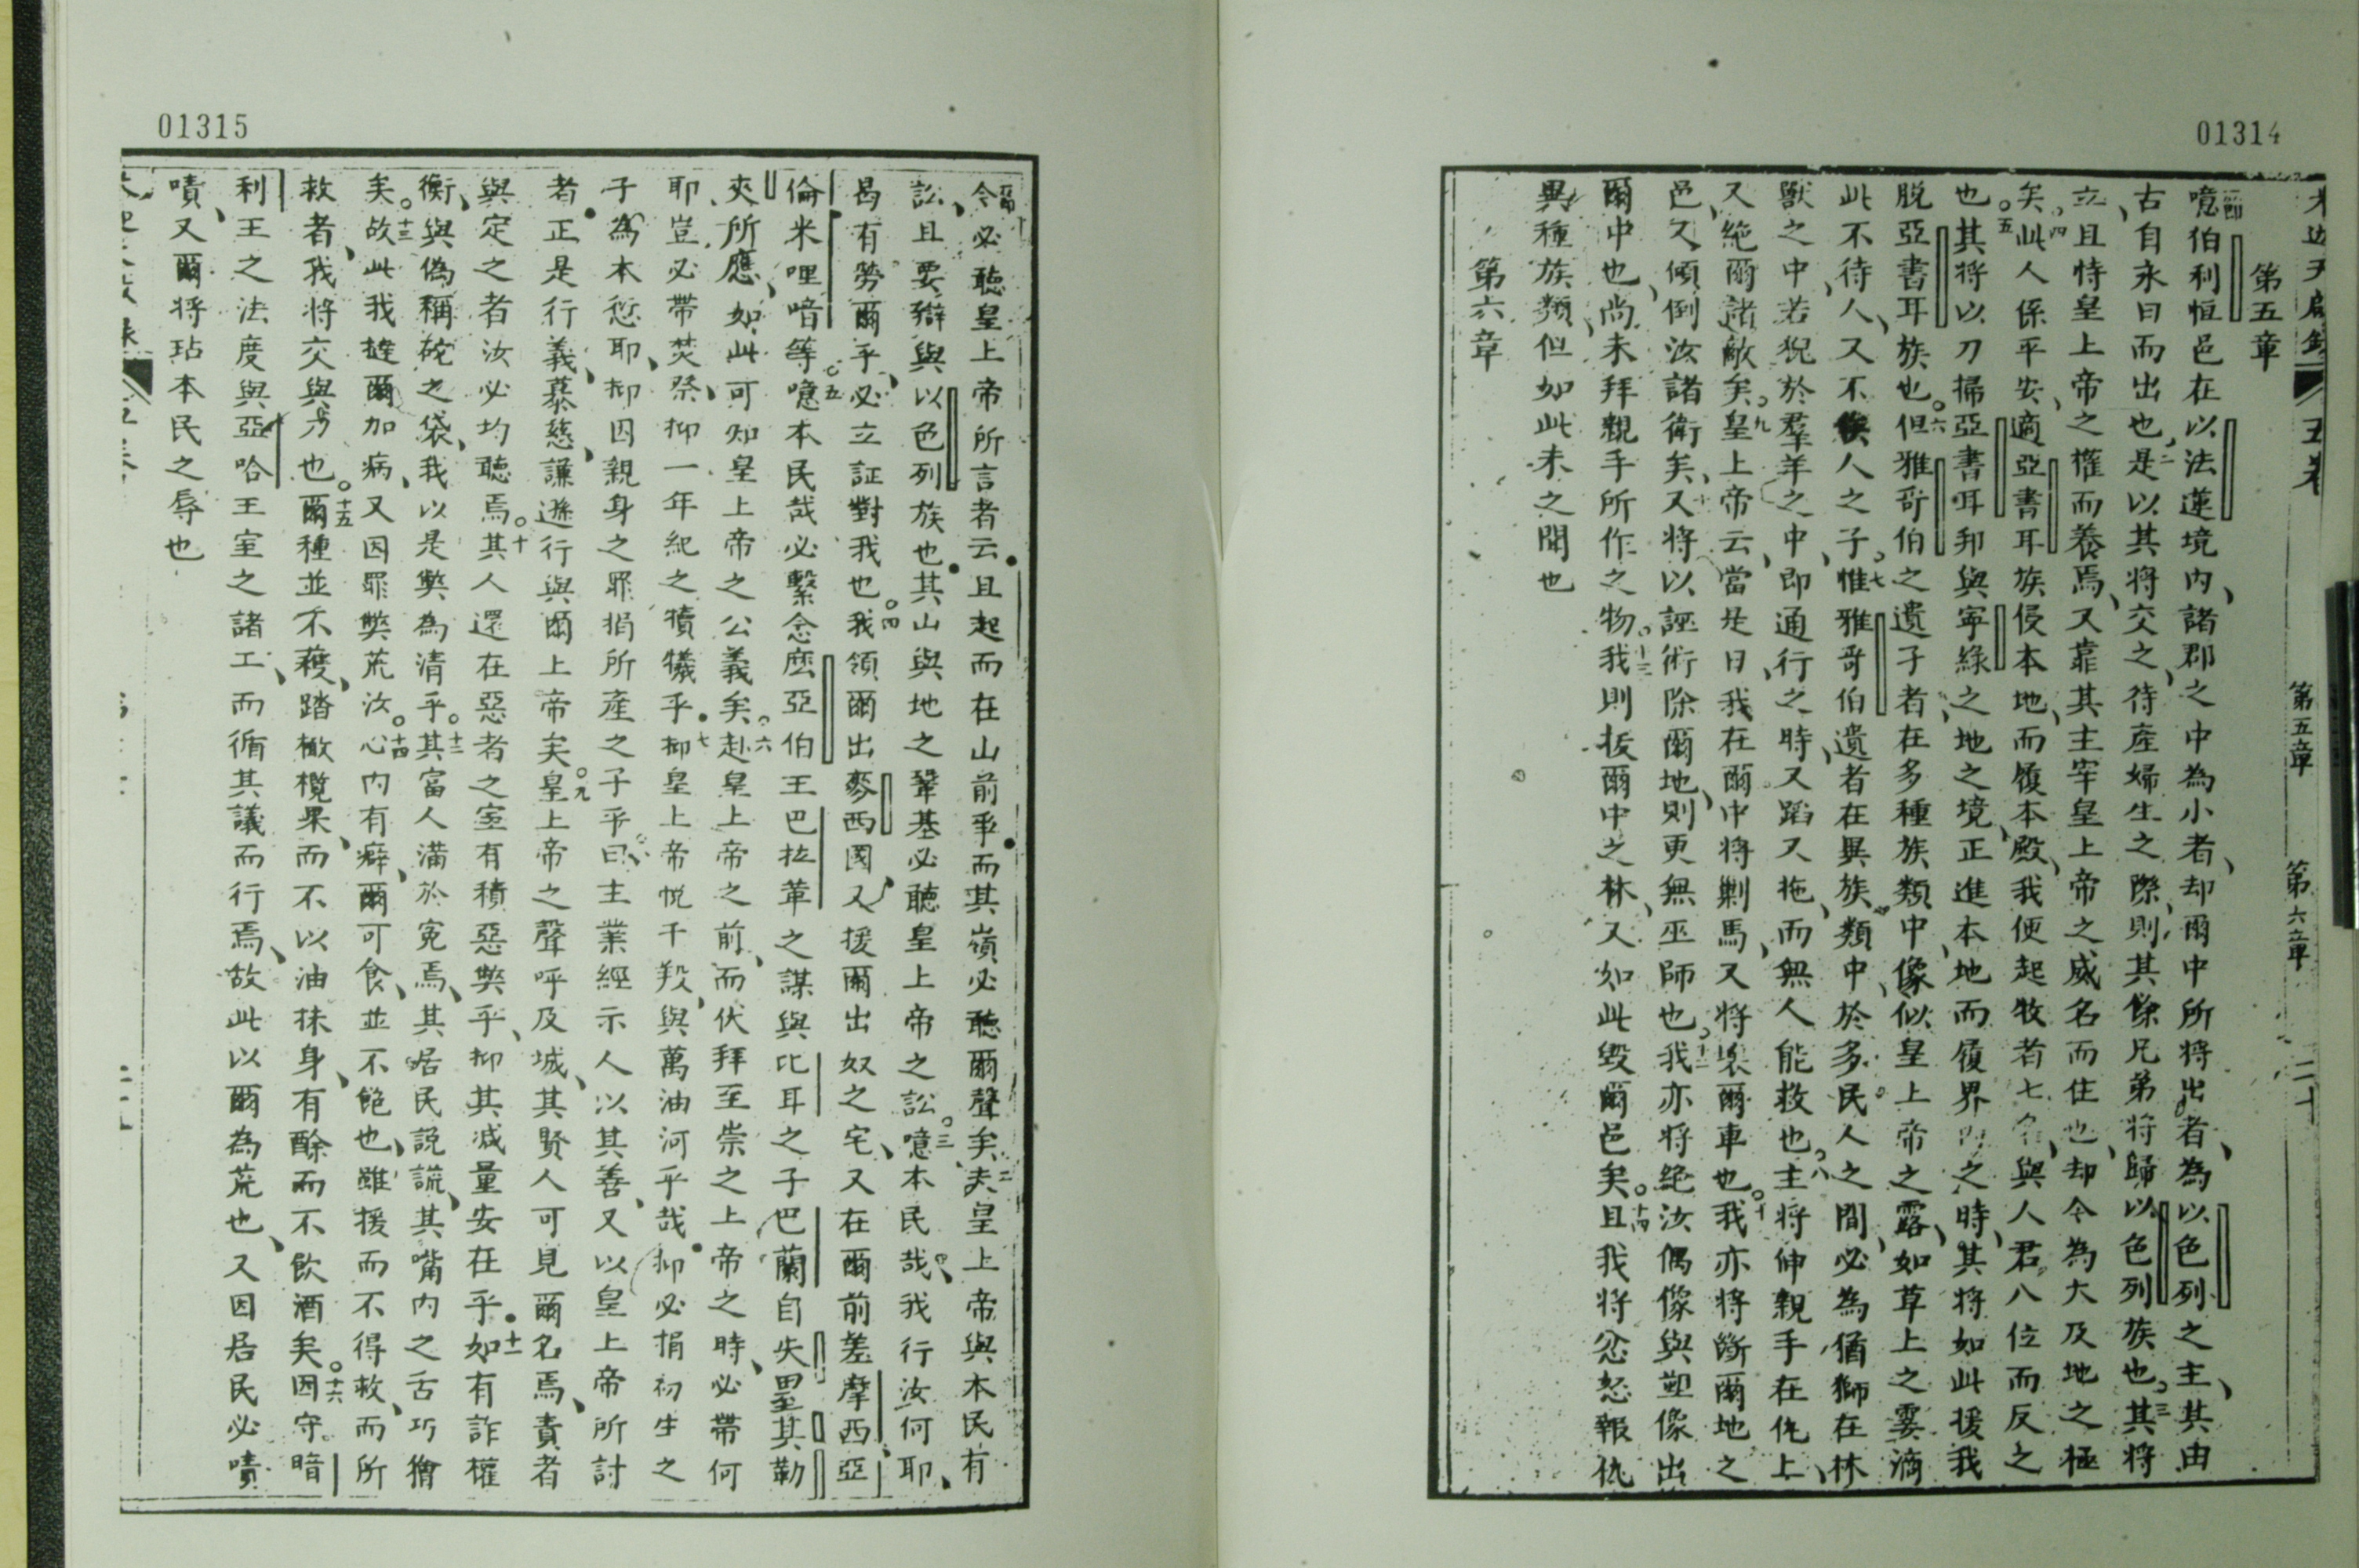 01314
米迦天啟錄 五卷 第五章 第六章 二十
第五章
噫伯利恒邑在以法蓮境內諸郡之中為小者却爾中所將出者為以色列之主其由
古自永日而出也二是以其將交之待產婦生之際則其餘兄弟將歸以色列族也三其將
立且恃皇上帝之權而養焉又靠其主宰皇上帝之威名而住也却今為大及地之極
矣四此人係平安適亞書耳族侵本地而履本殿我便起牧者七名與人君八位而反之
也五其將以刀掃亞書耳邦與寧綠之地之境正進本地而履界內之時其將如此援我
脫亞書耳族也六但雅哥伯之遺子者在多種族類中像似皇上帝之露如草上之雯滴
此不待人又不俟人之子七惟雅哥伯遺者在異族類中於多民人之間必為猶獅在林
獸之中若猊於羣羊之中即通行之時又蹈又拖而無人能救也八主將伸親手在仇上
又絕爾諸敵矣九皇上帝云當是日我在爾中將剿馬又將壞爾車也十我亦將斷爾地之
邑又傾倒汝諸衛矣又將以誣術除爾地則更無巫師也十二我亦將絕汝偶像與塑像出
爾中也尚未拜親手所作之物十三我則拔爾中之林又如此毀爾邑矣十四且我將忿怒報仇
異種族類但如此未之聞也
第六章
01315
今必聽皇上帝所言者云且起而在山前爭而其嶺必聽爾聲矣二夫皇上帝與本民有
訟且要辯與以色列族也其山與地之鞏基必聽皇上帝之訟三噫本民哉我行汝何耶
曷有勞爾乎必立証對我也四我領爾出麥西國又援爾出奴之宅又在爾前差摩西亞
倫米哩暗等五噫本民哉必繫念麼亞伯王巴拉革之謀與比耳之子巴蘭自失里至其勒
夾所應如此可知皇上帝之公義矣六赴皇上帝之前而伏拜至崇之上帝之時必帶何
耶豈必帶焚祭抑一年紀之犢犧乎七抑皇上帝悅千羖與萬油河乎哉抑必捐初生之
子為本愆耶抑因親身之罪捐所產之子乎八曰主業經示人以其善又以皇上帝所討
者正是行義慕慈謙遜行與爾上帝矣九皇上帝之聲呼及城其賢人可見爾名焉責者
與定之者汝必均聽焉十其人還在惡者之室有積惡弊乎抑其減量安在乎十一如有詐權
衡與偽稱砣之袋我以是弊為清乎十二其富人滿於冤焉其居民說謊其嘴內之舌巧獪
矣十三故此我撻爾加病又因罪弊荒汝十四心內有癖爾可食並不飽也雖援而不得救而所
救者我將交與刀也十五爾種並不穫踏橄欖果而不以油抹身有酴而不飲酒矣十六因守暗
利王之法度與亞哈王室之諸工而循其議而行焉故此以爾為荒也又因居民必嘖
嘖又爾將玷本民之辱也